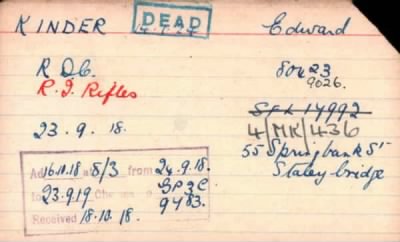 KINDER DEAD Edward
R.D.C. 80423
R.I. Rifles 9026.
23.9.18. 4/MK/436
55 Springbank St
Staleybridge
Ad 16.11.18 at 8/3 from 24.9.18.
to 23.9.19
Received 18.10.18.